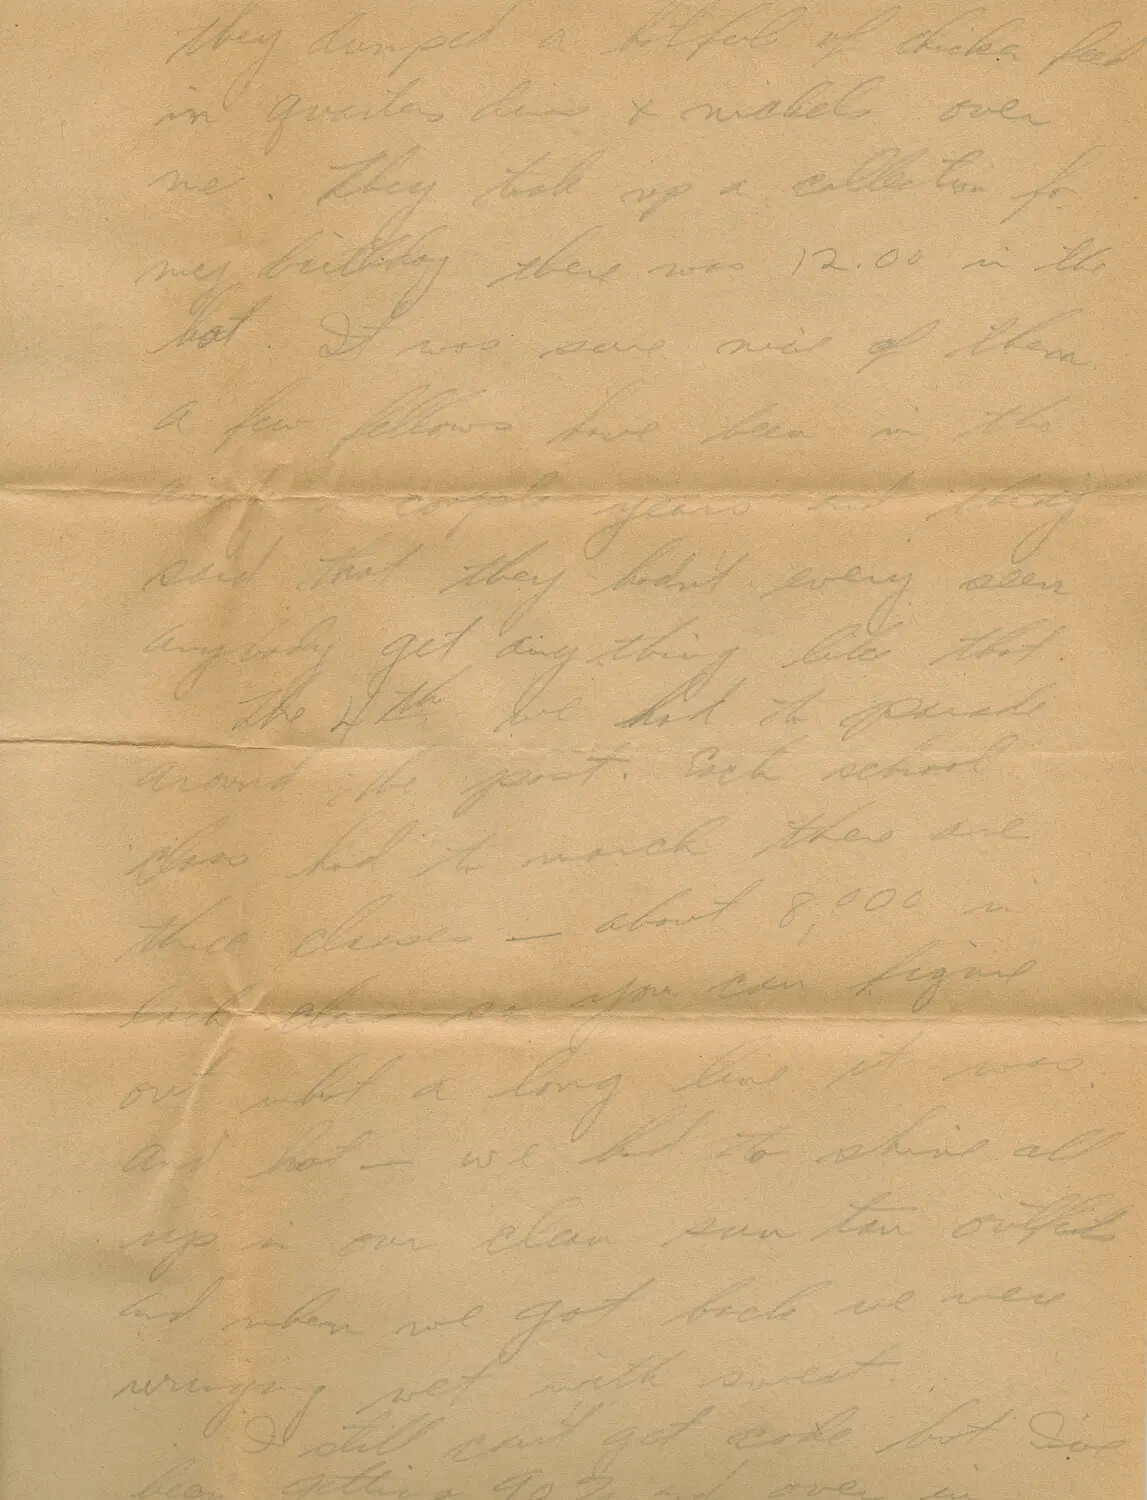 They dumped a hatful of chicken feed
in quarters dimes & nickels over
me. They took up a collection for
my birthday there was 12.00 in the
hat It was sure nice of them
A few fellows have been in the
army a couple years and they
said that they hadn't every seen
anybody get anything like that.
The 4th we had to parade
around the post. Each school
class had to march there are
three classes — about 8,000 in
each class so you can figure
out what a long line it was.
And hot — we had to shine all
up in our clean sun tan outfits
and when we got back we were
wringing wet with sweat.
I still can't get code but I've
been getting 90% and over in